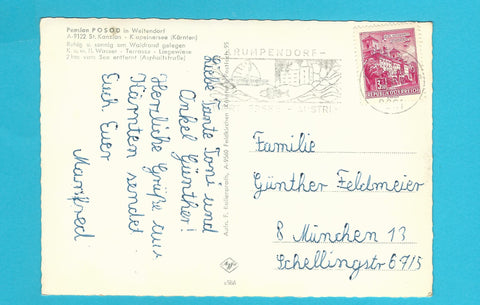 Pension POSOD in Weitendorf
A-9122, St. Kanzian - Klopeinersee (Kärnten)
Ruhig u. sonnig am Waldrand gelegen
K. u. w. fl. Wasser - Terrasse - Liegewiese
2 km vom See entfernt (Asphaltstraße)
Liebe Tante Toni und
Onkel Günther!
Herzliche Grüße aus
Kärnten sendet
Euch Euer
Manfred
A-9560 Feldkirchen
Agfa
REPUBLIK ÖSTERREICH
Familie
Günther Feldmeier
8 München 13
Schellingstr 69/5